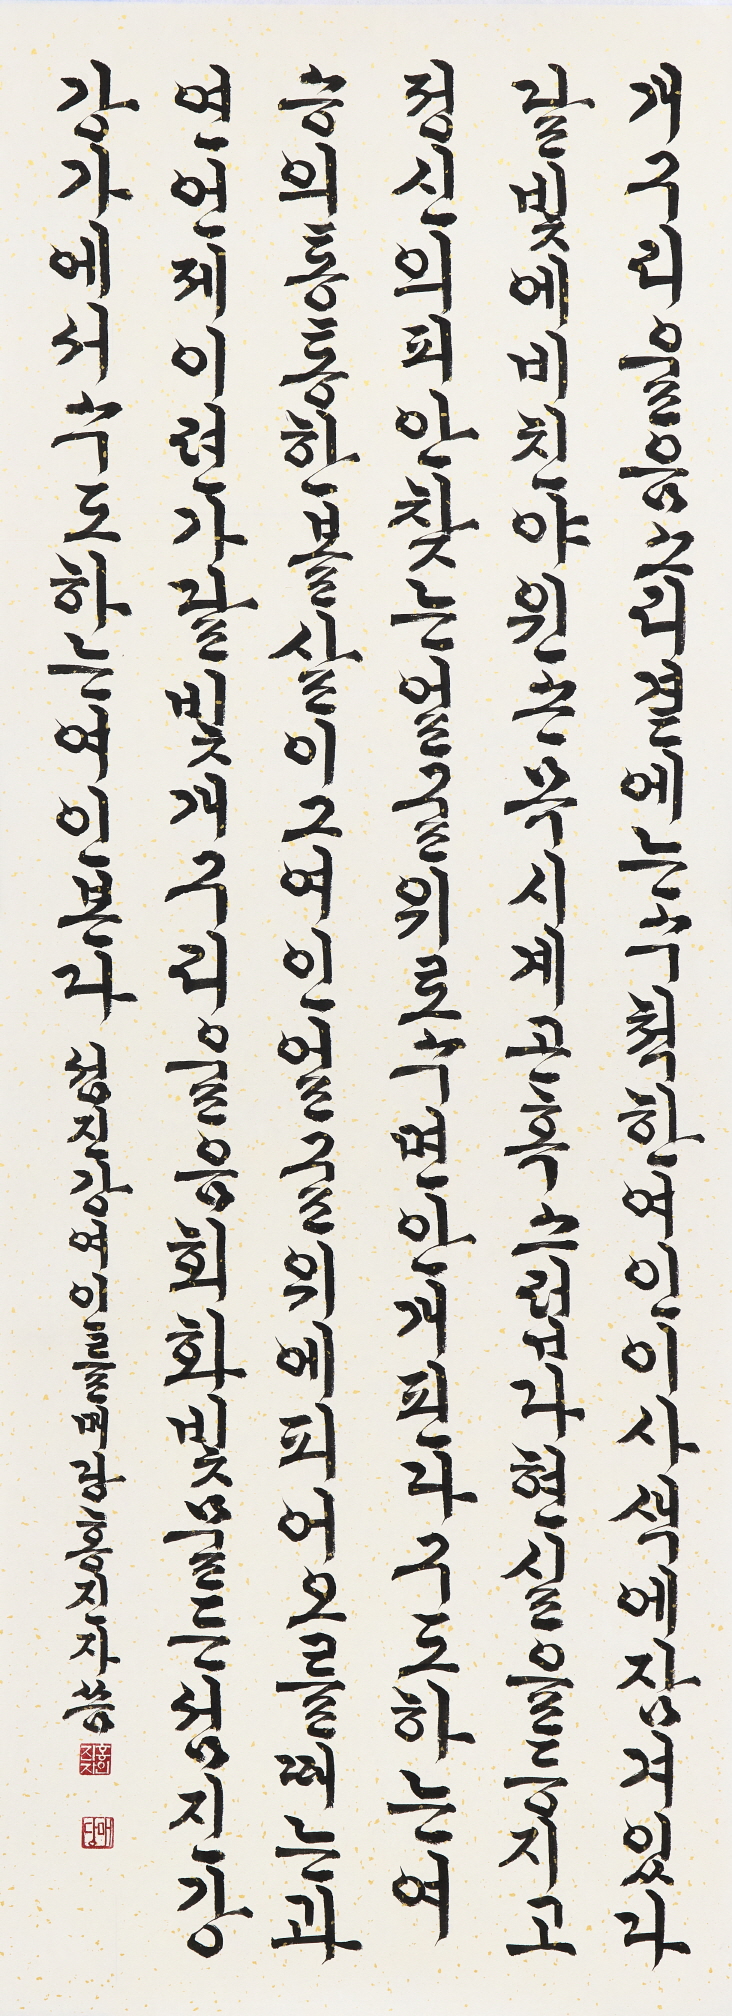 개구리울음소리결에는수척한여인이사색에잠겨있다
갈빛에비친야윈손목시계곤혹스럽다현실을등지고
정신의피안찾는얼굴위로수면안개핀다구도하는여
승의통통한볼살이그여인얼굴위에피어오를때는과
연언제이런가갈빛개구리울음회화빛물든섬진강
강가에서수도하는여인본다 섬진강여이를매당홍진자씀
홍진자
매당